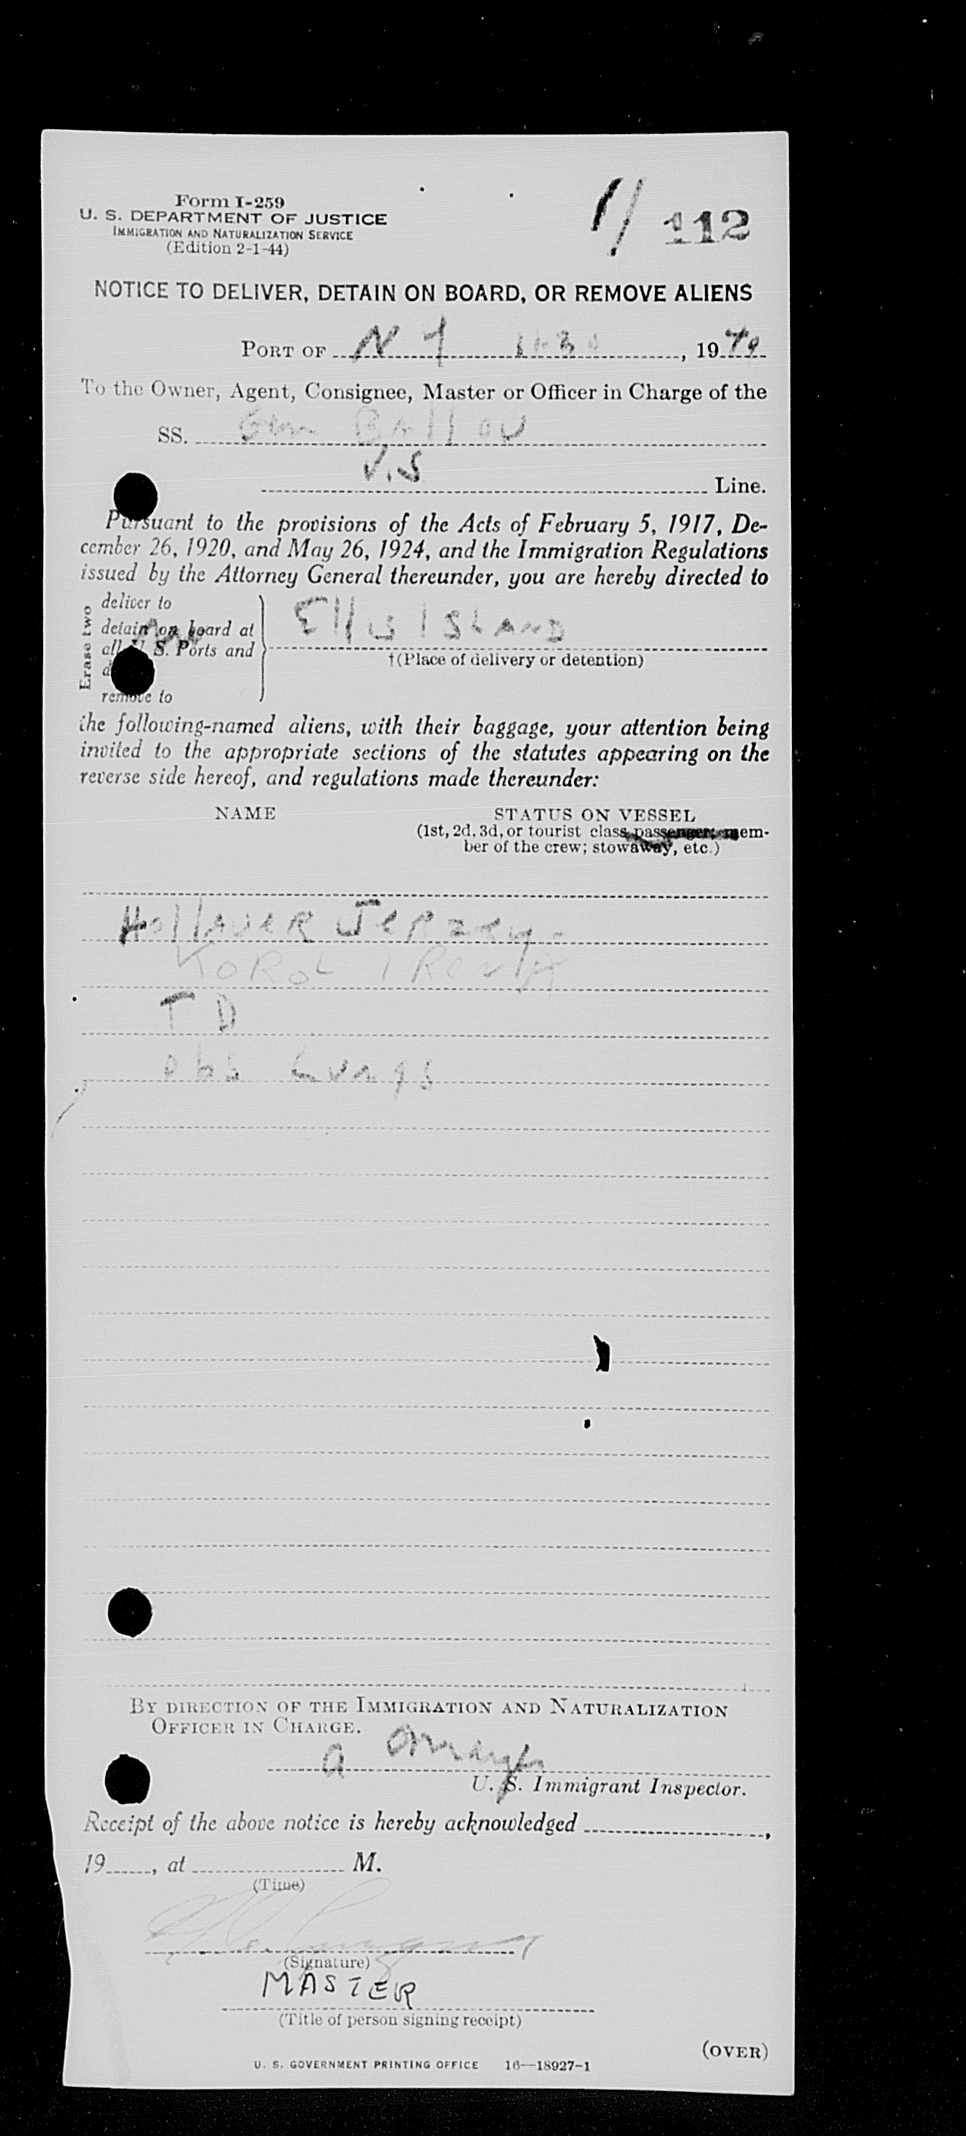 Form I-259
U. S. DEPARTMENT OF JUSTICE
IMMIGRATION AND NATURALIZATION SERVICE
(Edition 2-1-44)
1/ 112
NOTICE TO DELIVER, DETAIN ON BOARD, OR REMOVE ALIENS
PORT OF N Y, 1949
To the Owner, Agent, Consignee, Master or Officer in Charge of the
SS. Gen Ballou
U.S Line.
Pursuant to the provisions of the Acts of February 5, 1917, De-
cember 26, 1920, and May 26, 1924, and the Immigration Regulations
issued by the Attorney General thereunder, you are hereby directed to
Erase two
deliver to
detain on board at
all U. S. Ports and
remove to
Ellis ISLAND
†(Place of delivery or detention)
the following-named aliens, with their baggage, your attention being
invited to the appropriate sections of the statutes appearing on the
reverse side hereof, and regulations made thereunder:
NAME
STATUS ON VESSEL
(1st, 2d, 3d, or tourist class passenger; mem-
ber of the crew; stowaway, etc.)
JERZEY
KOROL IRENA
T D
obs Lungs
BY DIRECTION OF THE IMMIGRATION AND NATURALIZATION
OFFICER IN CHARGE.
U. S. Immigrant Inspector.
Receipt of the above notice is hereby acknowledged ,
19 , at M.
(Time)
(Signature)
MASTER
(Title of person signing receipt)
(OVER)
U. S. GOVERNMENT PRINTING OFFICE 16—18927-1